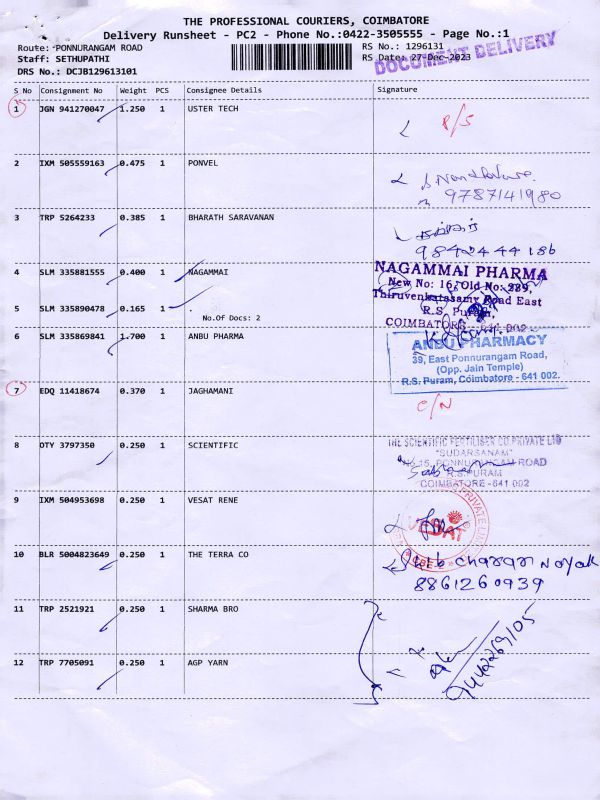 THE PROFESSIONAL COURIERS, COIMBATORE
Delivery Runsheet - PC2 - Phone No.:0422-3505555 - Page No.:1
Route: PONNURANGAM ROAD
Staff: SETHUPATHI
DRS No.: DCJB129613101
RS No.: 1296131
RS Date: 27-Dec-2023
DOCUMENT DELIVERY
S No Consignment No Weight PCS Consignee Details Signature
1 JGN 941270047 1.250 1 USTER TECH P/S
2 IXM 505559163 0.475 1 PONVEL
9787141980
3 TRP 5264233 0.385 1 BHARATH SARAVANAN
9842444186
4 SLM 335881555 0.400 1 NAGAMMAI
NAGAMMAI PHARMA
New No: 16, Old No: 289,
Thiruvenkatasamy Road East
R.S. Puram,
COIMBATORE - 641 002
5 SLM 335890478 0.165 1 .
No.Of Docs: 2
6 SLM 335869841 1.700 1 ANBU PHARMA
ANBU PHARMACY
39, East Ponnurangam Road,
(Opp. Jain Temple)
R.S. Puram, Coimbatore - 641 002.
7 EDQ 11418674 0.370 1 JAGHAMANI C/N
8 DTY 3797350 0.250 1 SCIENTIFIC
THE SCIENTIFIC FERTILISER CO.PRIVATE LTD
"SUDARSANAM"
No.15, PONNURANGAM ROAD
R.S.PURAM
COIMBATORE - 641 002
9 IXM 504953698 0.250 1 VESAT RENE
10 BLR 5004823649 0.250 1 THE TERRA CO
charan Nayak
8861260939
11 TRP 2521921 0.250 1 SHARMA BRO
12 TRP 7705091 0.250 1 AGP YARN
9442269105